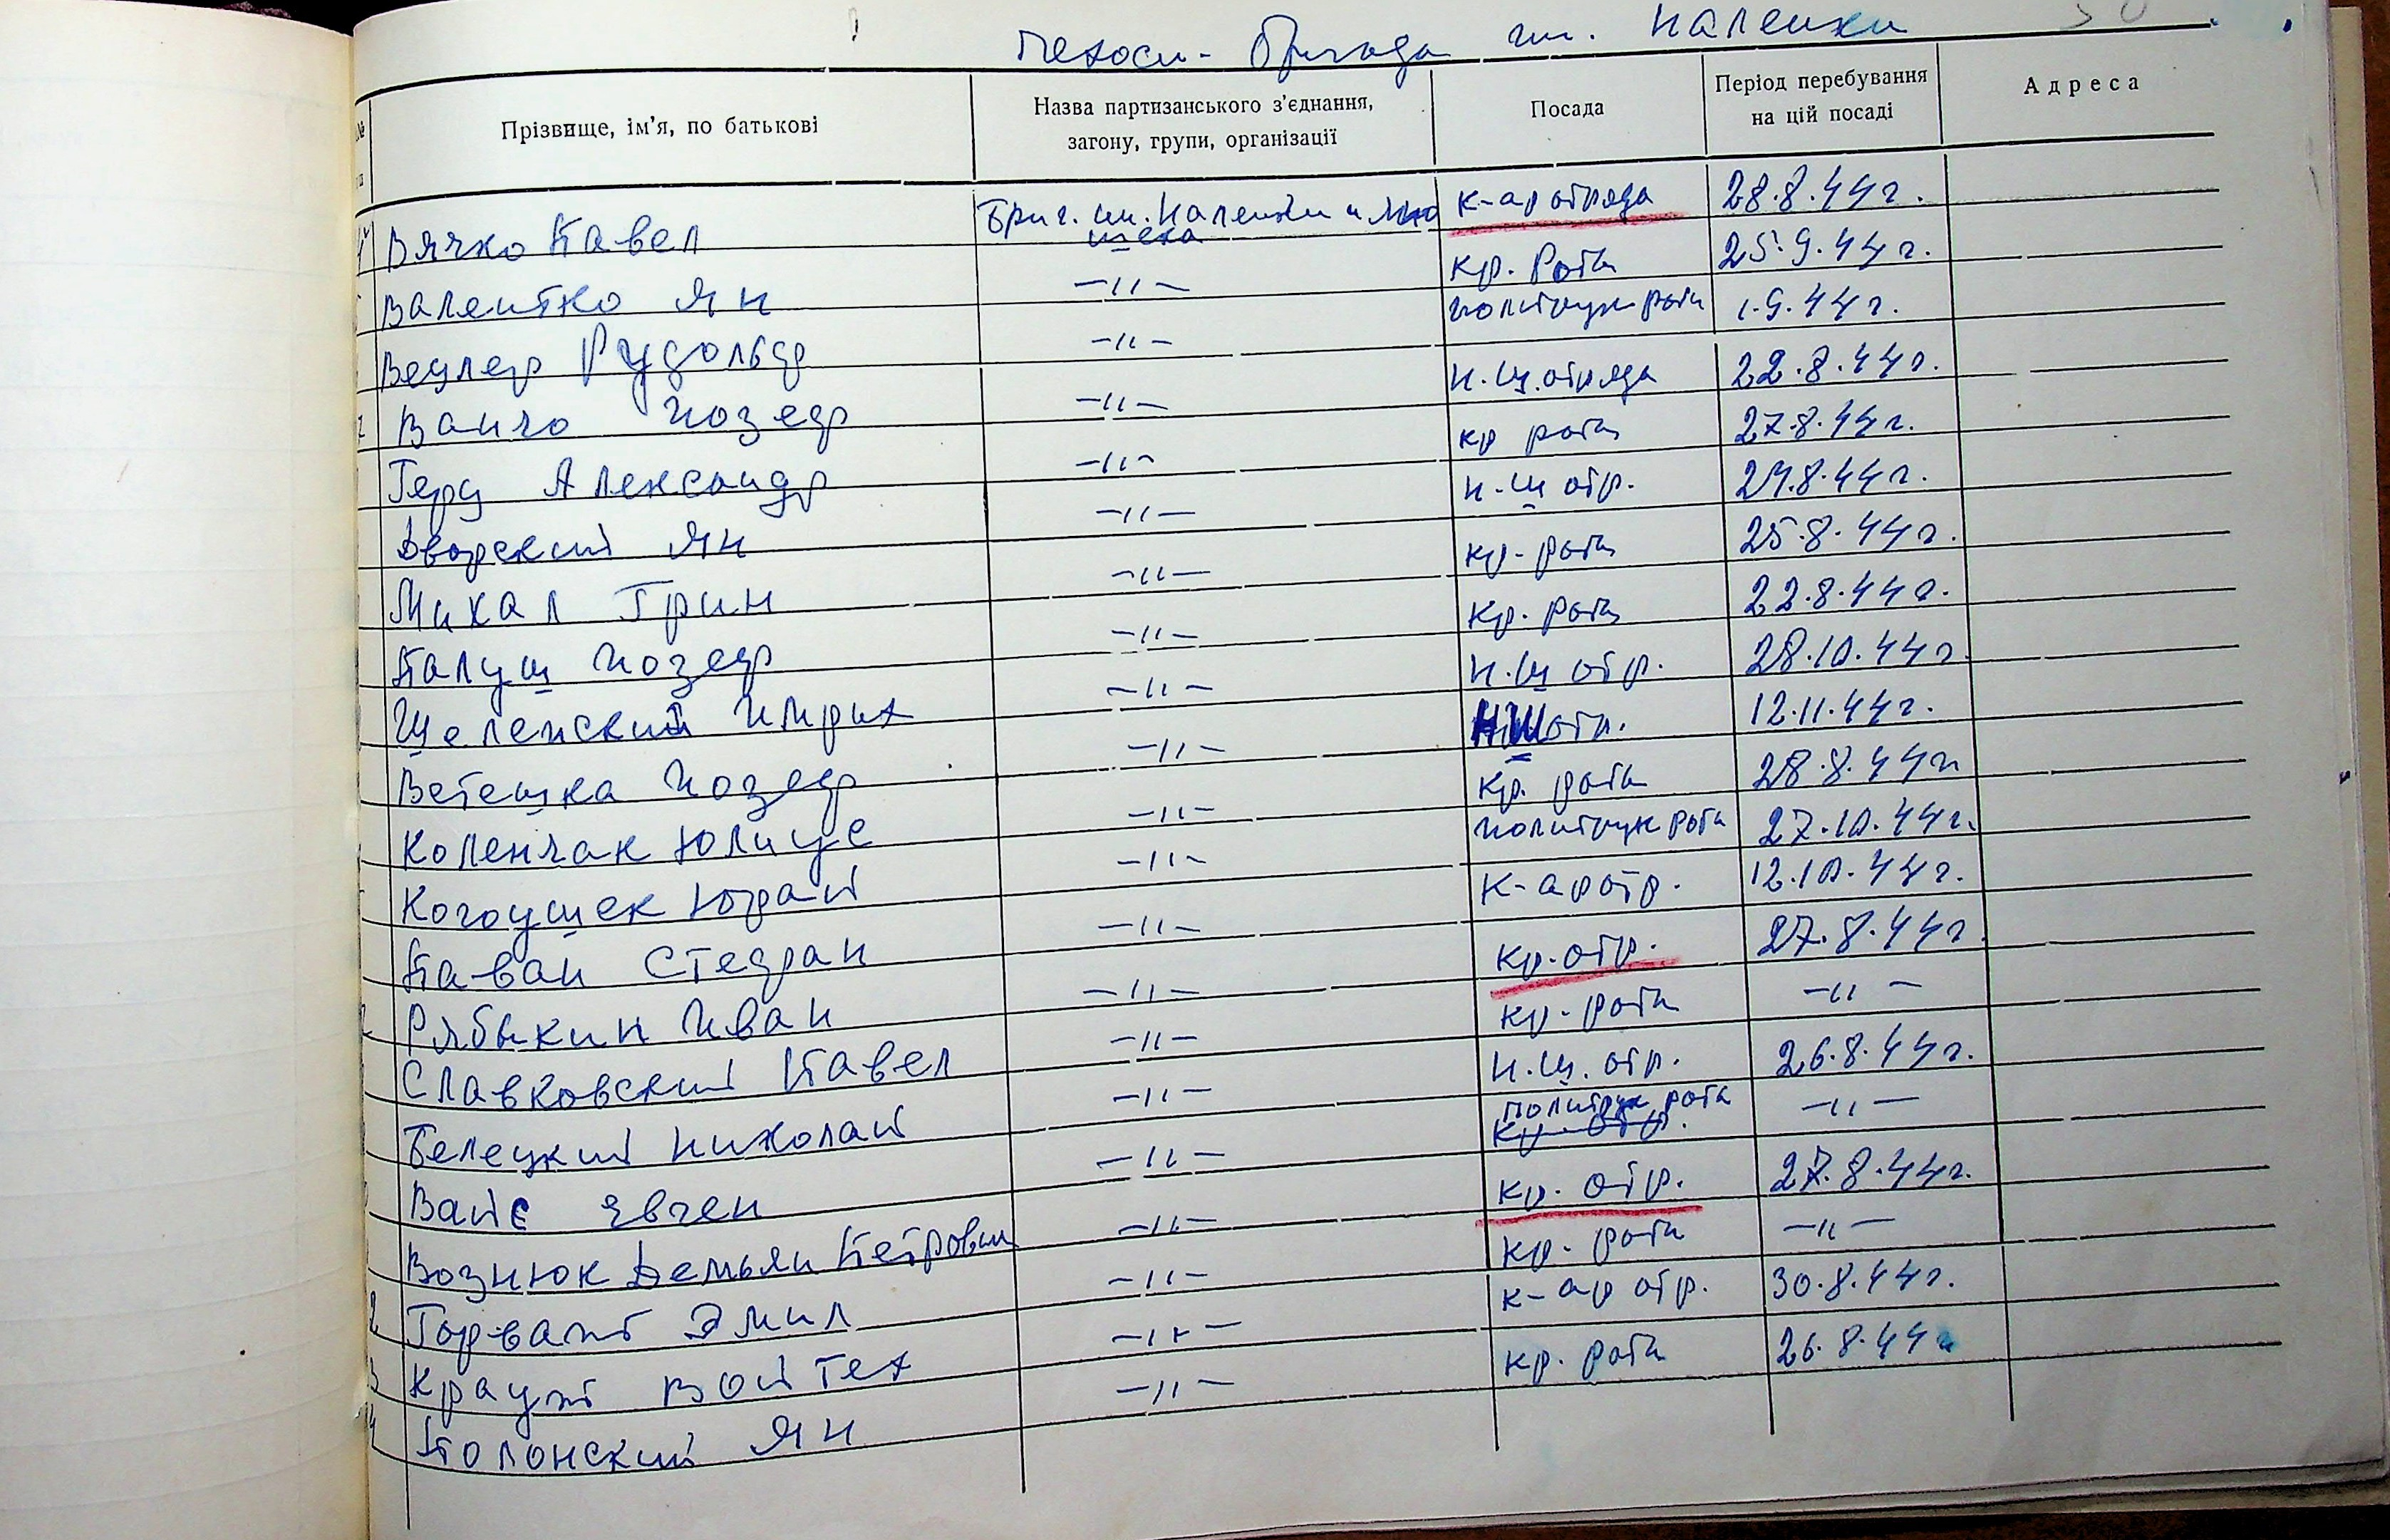 бригада им. Каленки
Прізвище, ім'я, по батькові Назва партизанського з'єднання, загону, групи, організації Посада Період перебування на цій посаді Адреса
Вячко Павел Бриг. им. Каленки и к-ар отряда 28.8.44г.
Валентко Ян —〃— кр. роты 25.9.44г.
Рудольф —〃— политрук роты 1.9.44г.
Ванчо Йозеф —〃— н.ш. отряда 22.8.44г.
Герц Александр —〃— кр роты 27.8.44г.
Дворский Ян —〃— н.ш отр. 27.8.44г.
Михал Грин —〃— кр. роты 25.8.44г.
Палуш Йозеф —〃— кр. роты 22.8.44г.
Щеленский Имрих —〃— н.ш отр. 28.10.44г.
Ветешка Йозеф —〃— НШ отр. 12.11.44г.
Коленчак Юлиус —〃— кр. роты 28.8.44г
Когоушек Юрай —〃— политрук роты 27.10.44г.
Павай Стефан —〃— к-ар отр. 12.10.44г.
Рябыкин Иван —〃— кр. отр. 27.8.44г.
Славковский Павел —〃— кр. роты —〃—
Белецкий Николай —〃— н.ш. отр. 26.8.44г.
Вайс Евген —〃— политрук роты —〃—
Вознюк Демьян Петрович —〃— кр. отр. 27.8.44г.
Горват Эмил —〃— кр. роты —〃—
Войтех —〃— к-ар отр. 30.8.44г.
Полонский Ян —〃— кр. роты 26.8.44г